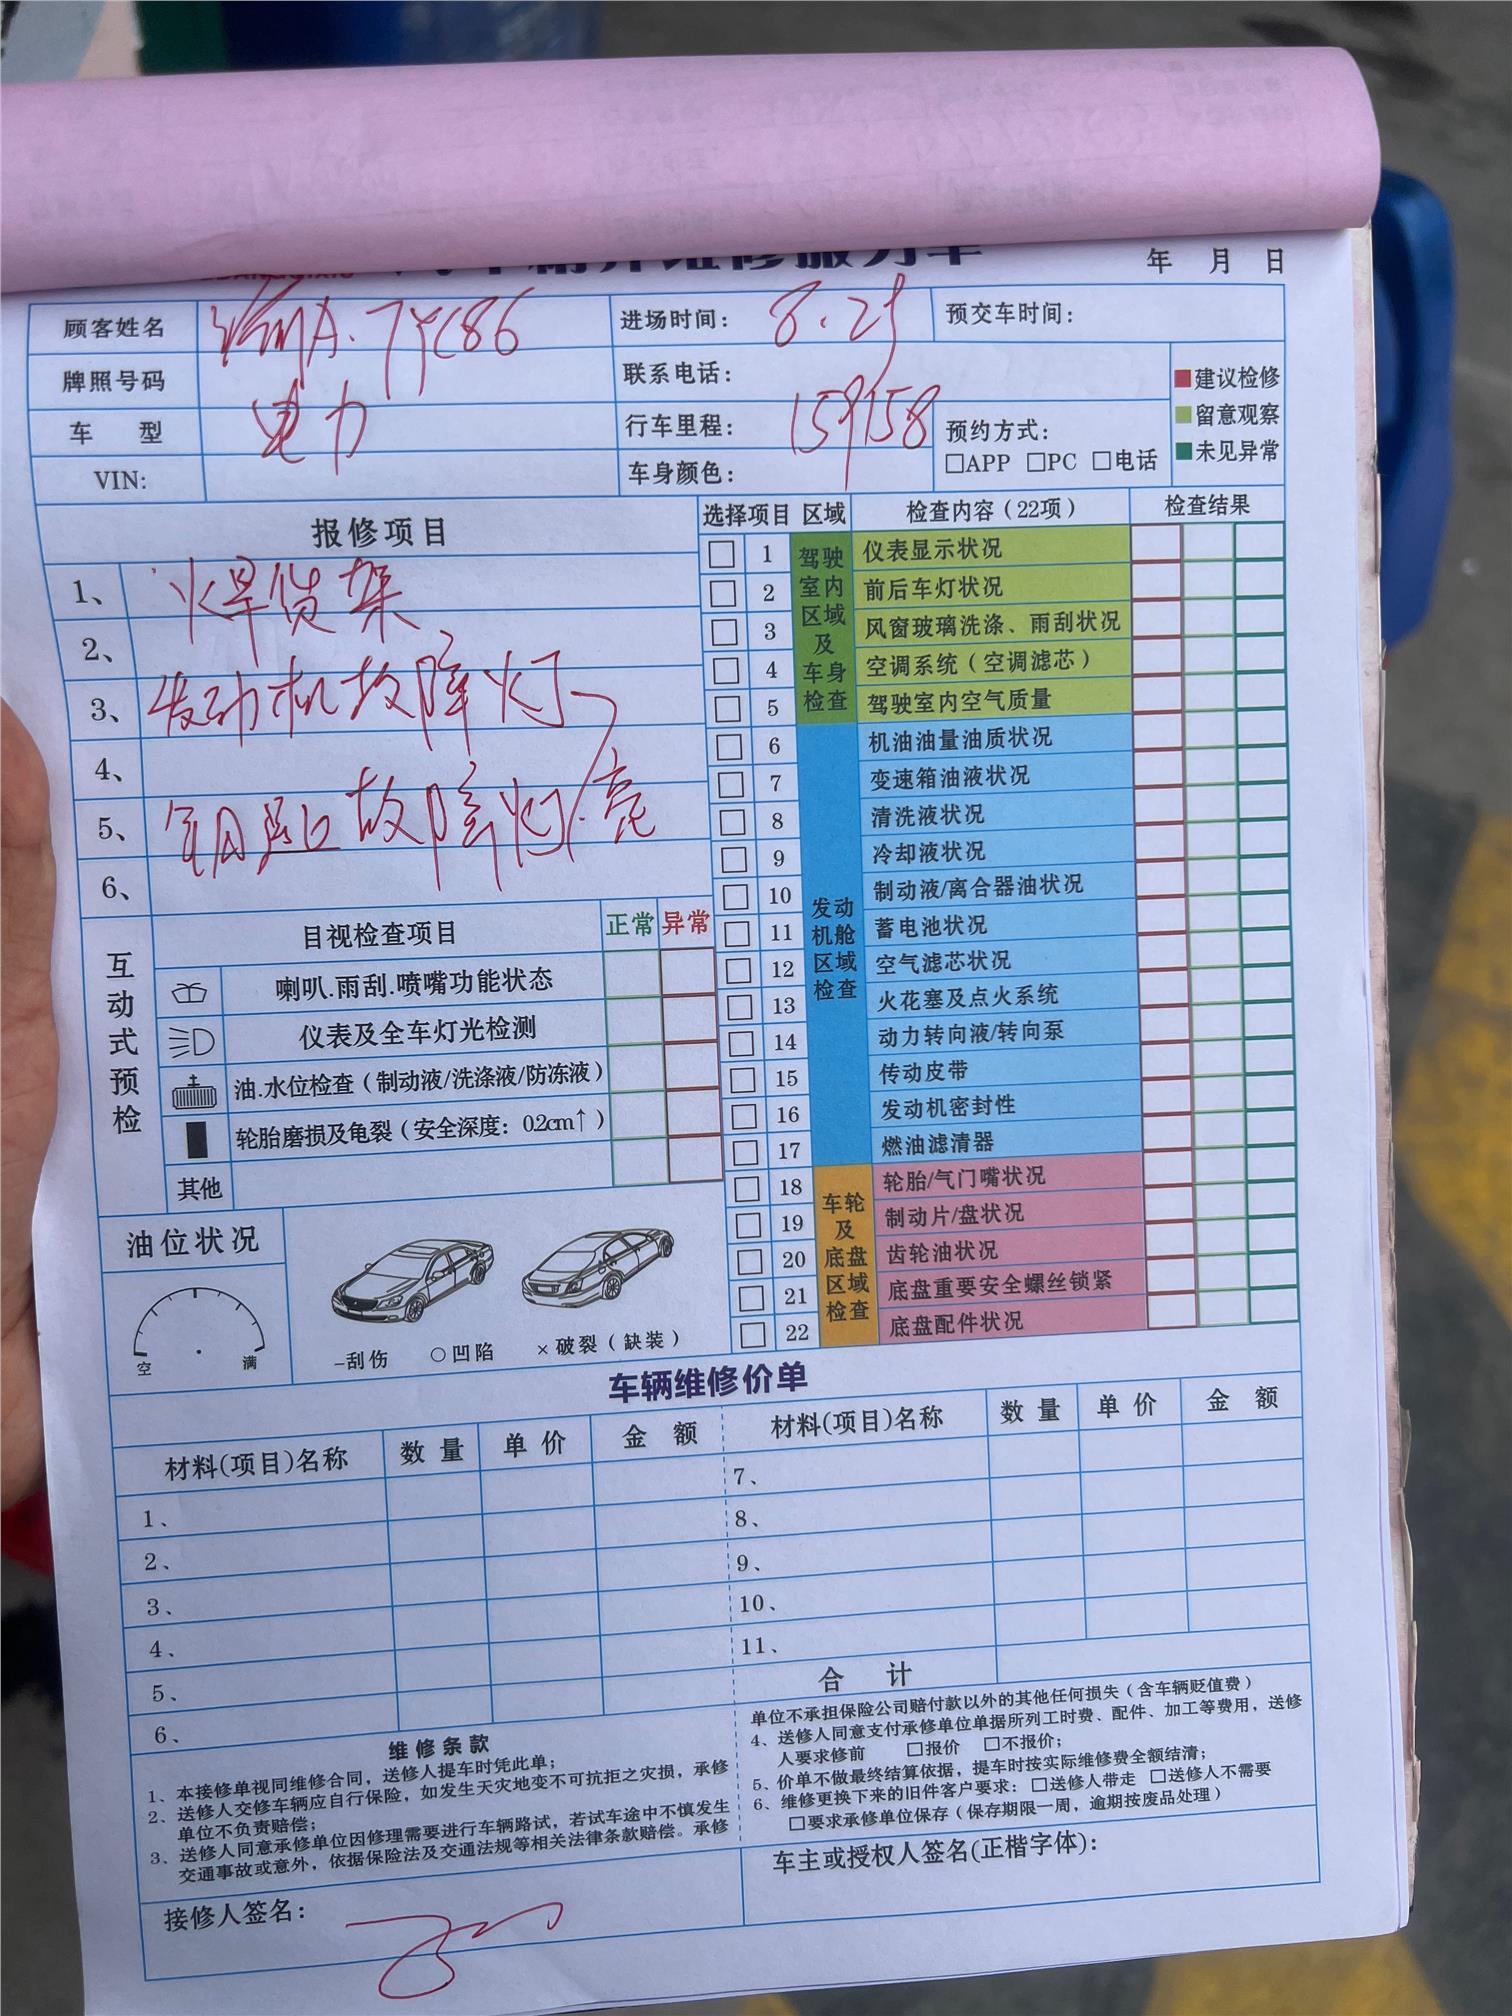 年 月 日
顾客姓名 A.7YC86 进场时间: 8.25 预交车时间:
牌照号码 联系电话:
车 型 电力 行车里程: 159158 预约方式:
□APP □PC □电话
VIN: 车身颜色:
建议检修
留意观察
未见异常
报修项目
1、 焊货架
2、
3、 发动机故障灯
4、
5、 故障灯亮
6、
互动式预检
目视检查项目 正常 异常
喇叭.雨刮.喷嘴功能状态
仪表及全车灯光检测
油.水位检查(制动液/洗涤液/防冻液)
轮胎磨损及龟裂(安全深度: 0.2cm↑)
其他
油位状况
空 满
-刮伤 ○凹陷 ×破裂(缺装)
选择项目 区域 检查内容(22项) 检查结果
驾驶室内区域及车身检查
1 仪表显示状况
2 前后车灯状况
3 风窗玻璃洗涤、雨刮状况
4 空调系统(空调滤芯)
5 驾驶室内空气质量
发动机舱区域检查
6 机油油量油质状况
7 变速箱油液状况
8 清洗液状况
9 冷却液状况
10 制动液/离合器油状况
11 蓄电池状况
12 空气滤芯状况
13 火花塞及点火系统
14 动力转向液/转向泵
15 传动皮带
16 发动机密封性
17 燃油滤清器
车轮及底盘区域检查
18 轮胎/气门嘴状况
19 制动片/盘状况
20 齿轮油状况
21 底盘重要安全螺丝锁紧
22 底盘配件状况
车辆维修价单
材料(项目)名称 数量 单价 金额 材料(项目)名称 数量 单价 金额
1、 7、
2、 8、
3、 9、
4、 10、
5、 11、
6、 合 计
维修条款
1、本接修单视同维修合同，送修人提车时凭此单；
2、送修人交修车辆应自行保险，如发生天灾地变不可抗拒之灾损，承修
单位不负责赔偿；
3、送修人同意承修单位因修理需要进行车辆路试，若试车途中不慎发生
交通事故或意外，依据保险法及交通法规等相关法律条款赔偿。承修
单位不承担保险公司赔付款以外的其他任何损失(含车辆贬值费)
4、送修人同意支付承修单位单据所列工时费、配件、加工等费用，送修
人要求修前 □报价 □不报价；
5、价单不做最终结算依据，提车时按实际维修费全额结清；
6、维修更换下来的旧件客户要求：□送修人带走 □送修人不需要
□要求承修单位保存(保存期限一周，逾期按废品处理)
接修人签名: 车主或授权人签名(正楷字体):